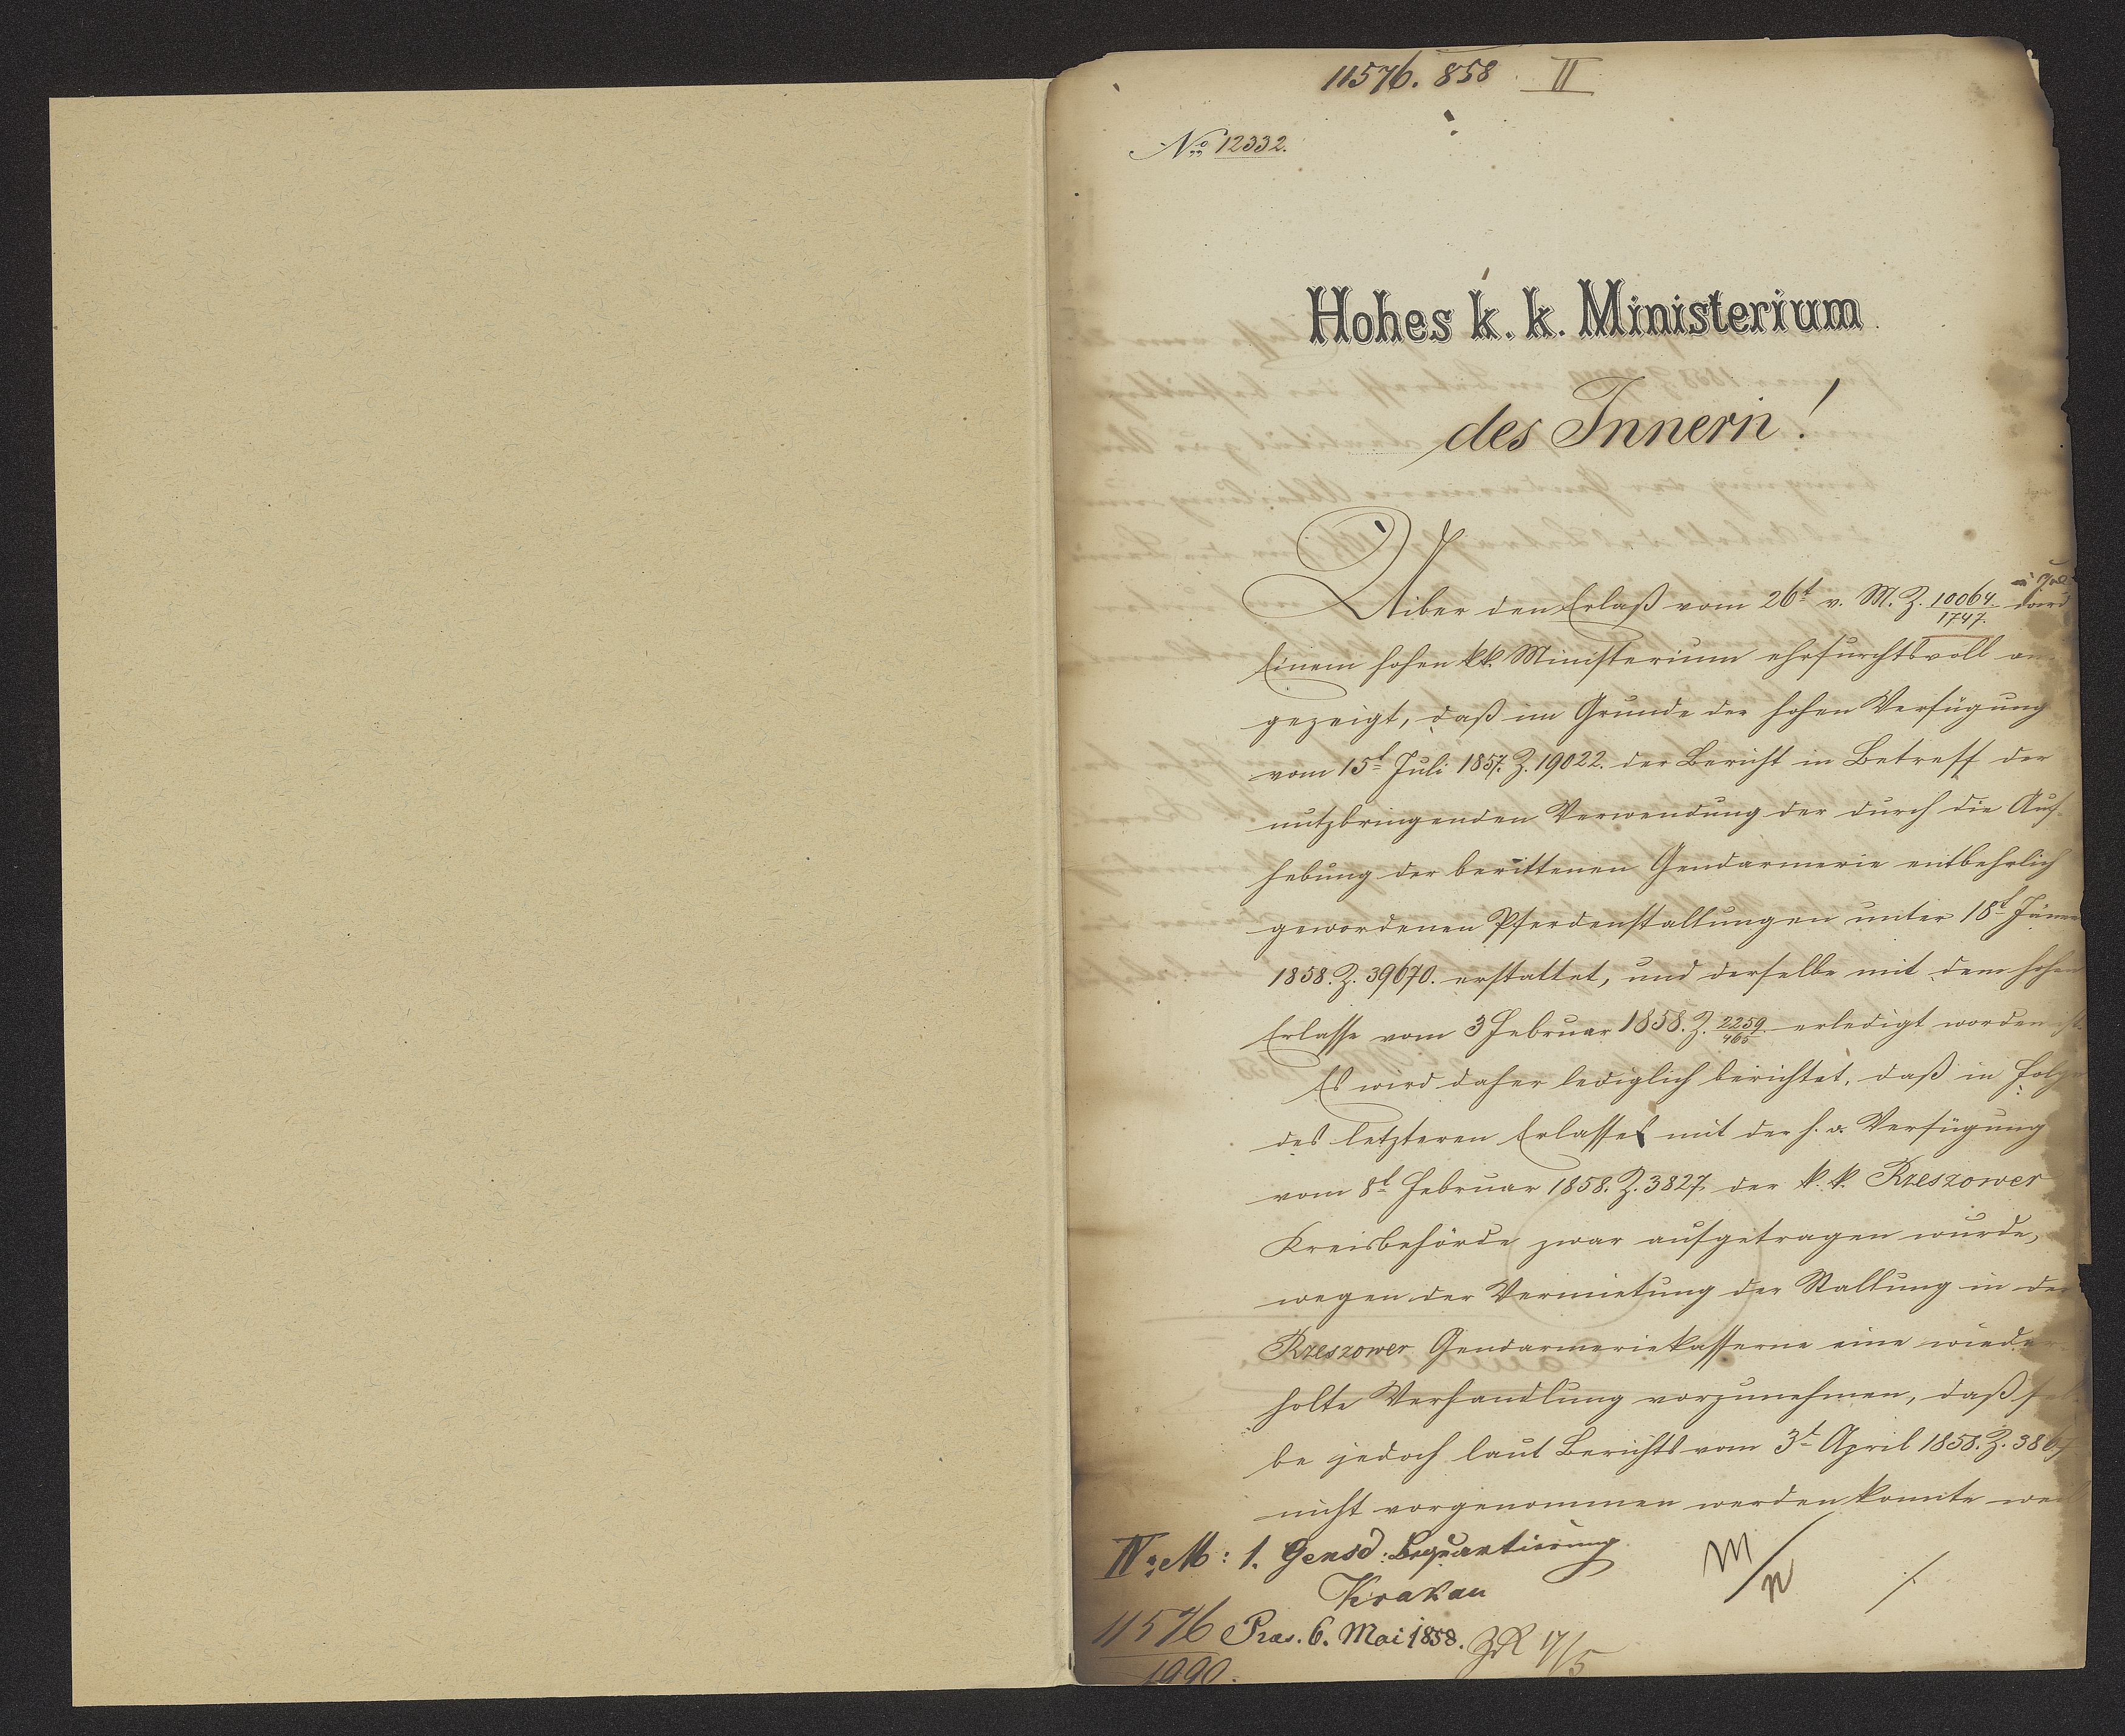 11576. 858 II
No 12332.
Hohes k. k. Ministerium
des Innern!
Uiber den Erlaß vom 26t v. M. Z. 10064/1747. wird
Einem hohen kk. Ministerium ehrfurchtsvoll an-
gezeigt, daß im Grunde der hohen Verfügung
vom 15t Juli 1857. Z. 19022. der Bericht in Betreff der
nutzbringenden Verwendung der durch die Auf-
hebung der berittenen Gendarmerie entbehrlich
gewordenen Pferdenstallungen unter 18t Jänner
1858. Z. 39670. erstattet, und derselbe mit dem hohen
Erlasse vom 3 Februar 1858. Z. 2259/465 erledigt worden ist.
Es wird daher lediglich berichtet, daß in Folge
des letzteren Erlasses mit der h. o. Verfügung
vom 8t Februar 1858. Z. 3827. der k. k. Rzeszower
Kreisbehörde zwar aufgetragen wurde,
wegen der Vermietung der Stallung in der
Rzeszower Gendarmeriekasserne eine wieder-
holte Verhandlung vorzunehmen, daß sel-
be jedoch laut Berichts vom 3t April 1858. Z. 386
nicht vorgenommen werden konnte weil
IV: M: 1. Gensd: Bequartirung
Krakau
11576 Pras. 6. Mai 1858. 17/5
1990.
M/n
./.